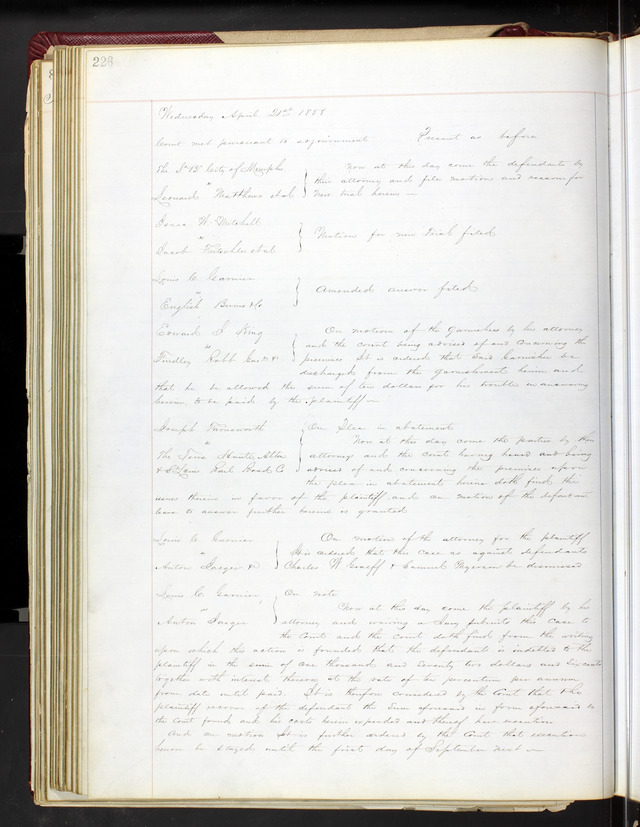 228
Wednesday April 21st 1858
Court met pursuant to adjournment Present as before
The St Bt City of Memphis
vs
Leonard Matthews et al
Now at this day come the defendants by
their attorney and file motion and reasons for
new trial herein
Isaac W. Mitchell
vs
Jacob et al
Motion for new trial filed
Louis C. Garnier
vs
English Burns & Co
Amended answer filed
Edward J. King
vs
Findley Robb Gar
On motion of the Garnishee by his attorney
and the court being advised of and concerning the
premises It is ordered that said Garnishee be
discharged from the garnishment herein and
that he be allowed the sum of ten dollars for his trouble in answering
herein to be paid by the plaintiff
Joseph
vs
The Terre Haute, Alton
& St Louis Rail Road Co
On Plea in abatement
Now at this day come the parties by their
attorneys and the Court having heard and being
advised of and concerning the premises upon
the plea in abatement herein doth find the
issues therein in favor of the plaintiff and on motion of the defendant
leave to answer further herein is granted
Louis C. Garnier
vs
Anton Jaeger &
On motion of the attorney for the plaintiff
It is ordered that this case as against defendants
Charles W & Samuel be dismissed
Louis C. Garnier,
vs
Anton Jaeger
On note
Now at this day come the plaintiff by his
attorney and waiving a Jury submits this case to
the Court and the court doth find from the writing
upon which this action is founded that the defendant is indebted to the
plaintiff in the sum of one thousand and seventy two dollars and six cents
together with interest thereon at the rate of ten per centum per annum
from date until paid. It is therefore considered by the Court that the
plaintiff recover of the defendant the sum aforesaid in form aforesaid by
the Court found and his costs herein expended and thereof have execution
And on motion It is further ordered by the Court that execution
herein be stayed until the first day of September next